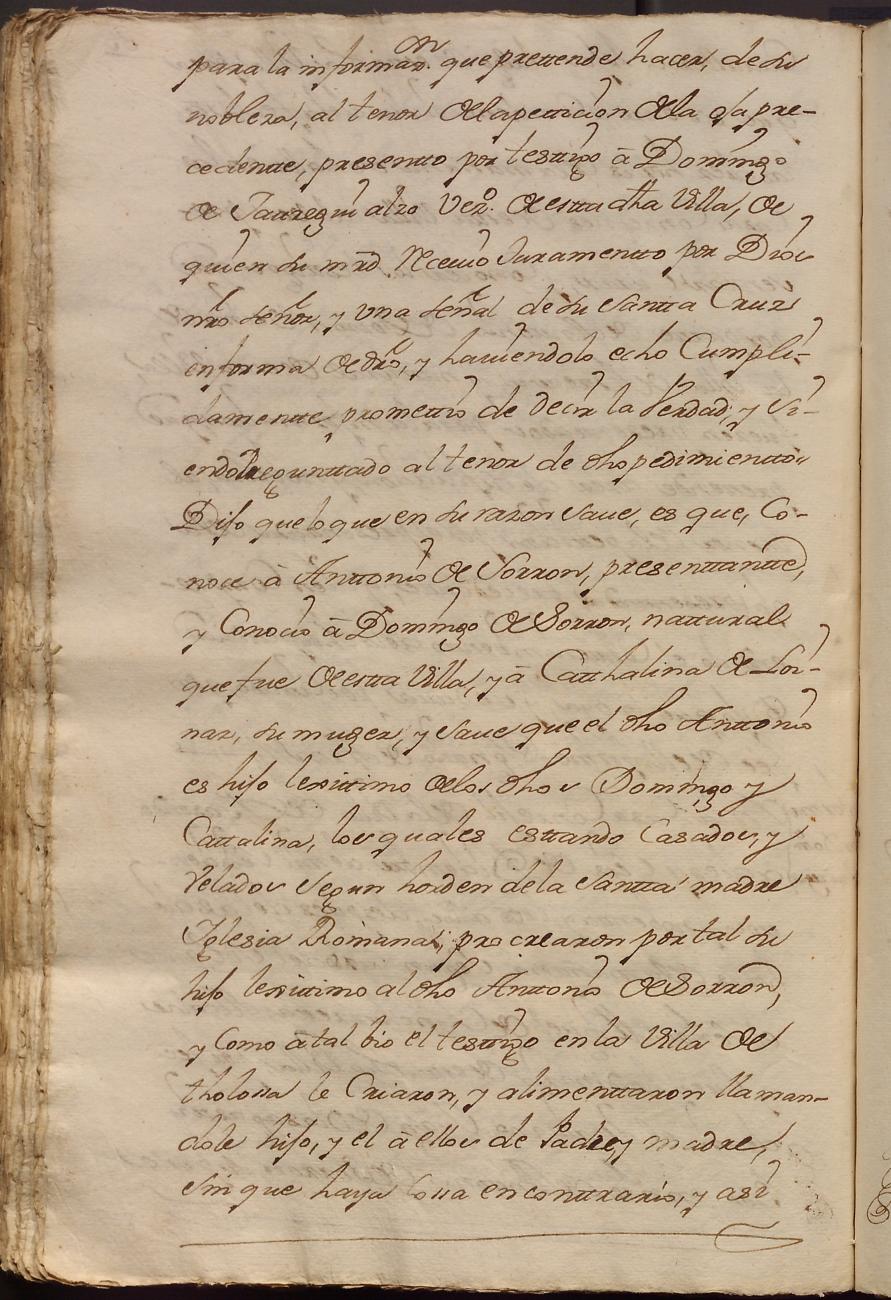 para la informaz.on que prettende hacer, de su
nobleza, al tenor de la pettizion de la oja pre-
cedentte, presentto por testigo â Domingo
de Jaurregui alzo vezº. de estta dha Villa, de
quien su mrd. Recevio Juramentto por Dios
nro señor, y una señal de su Santta Cruz
en forma de dro, y haviendolo echo Cumpli-
damentte promettio de decir la Verdad, y si-
endo Preguntado al tenor de dho pedimientto,
Dijo que lo que en su razon save, es que, Co-
noce â Anttonio de Sorron, presenttantte,
y Conocio â Domingo de Sorron, nattural
que fue de estta Villa, y â Catthalina de Loi-
naz, su muger, y save que el dho Anttonio
es hijo lexittimo de los dhos Domingo y
Cattalina, los quales esttando Casados, y
Velados segun horden de la Santta madre
Yglesia Romana, procrearon por tal su
hijo lexittimo al dho Anttonio de Sorron,
y Como â tal bio el testigo en la Villa de
tholossa le Criaron, y alimenttaron llaman-
dole hijo, y el â ellos de Padre, y madre,
sin que haya Cossa en conttrario, y asi